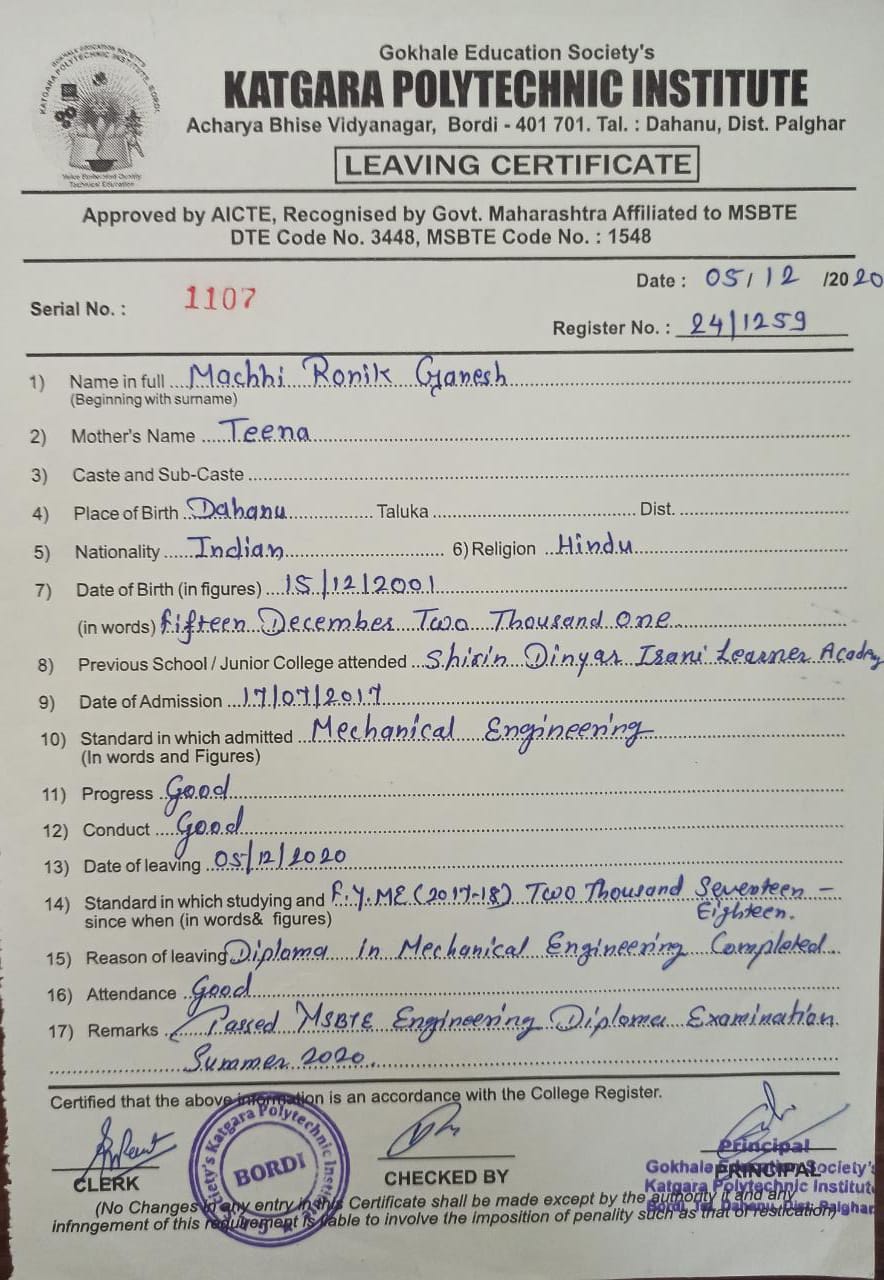 GOKHALE EDUCATION SOCIETY'S
KATGARA POLYTECHNIC INSTITUTE, BORDI
Value Embedded Quality
Technical Education
Gokhale Education Society's
KATGARA POLYTECHNIC INSTITUTE
Acharya Bhise Vidyanagar, Bordi - 401 701. Tal. : Dahanu, Dist. Palghar
LEAVING CERTIFICATE
Approved by AICTE, Recognised by Govt. Maharashtra Affiliated to MSBTE
DTE Code No. 3448, MSBTE Code No. : 1548
Date : 05/12/2020
Serial No. : 1107
Register No. : 24/1259
1) Name in full Machhi Ronik Ganesh
(Beginning with surname)
2) Mother's Name Teena
3) Caste and Sub-Caste
4) Place of Birth Dahanu Taluka Dist.
5) Nationality Indian 6) Religion Hindu
7) Date of Birth (in figures) 15/12/2001
(in words) fifteen December Two Thousand One
8) Previous School / Junior College attended Shirin Dinyar Irani Learner Acadmy
9) Date of Admission 17/07/2017
10) Standard in which admitted Mechanical Engineering
(In words and Figures)
11) Progress Good
12) Conduct Good
13) Date of leaving 05/12/2020
14) Standard in which studying and F.Y.ME (2017-18) Two Thousand Seventeen -
since when (in words& figures) Eighteen.
15) Reason of leaving Diploma in Mechanical Engineering Completed.
16) Attendance Good
17) Remarks Passed MSBTE Engineering Diploma Examination
Summer 2020.
Certified that the above information is an accordance with the College Register.
Society's Katgara Polytechnic Institute
BORDI
CLERK
CHECKED BY
PRINCIPAL
Principal
Gokhale Education Society's
Katgara Polytechnic Institute
Bordi, Tal. Dahanu, Dist. Palghar
(No Changes in any entry in this Certificate shall be made except by the authority it and any
infnngement of this requirement is liable to involve the imposition of penality such as that of restication)